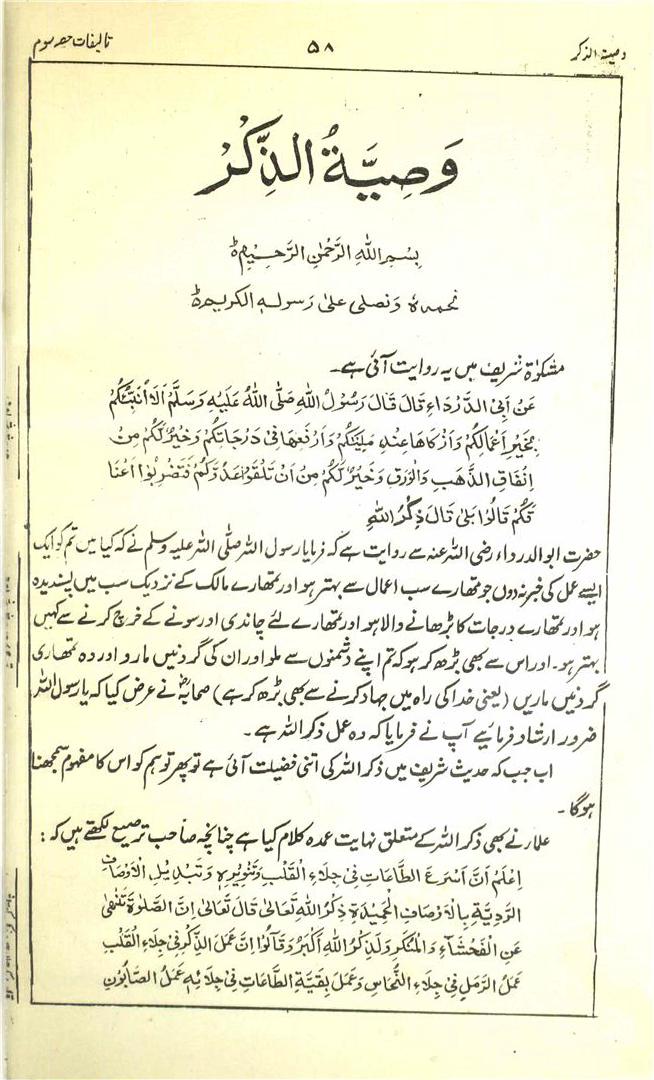 وصیۃ الذکر ۵۸ تالیفات حصہ سوم
وَصِيَّةُ الذِّكْرْ
بِسْمِ اللهِ الرَّحْمٰنِ الرَّحِيْمِ ط
نحمدہ ونصلی علیٰ رسولہ الکریم ط
مشکوٰۃ شریف میں یہ روایت آئی ہے۔
عَنْ اَبِی الدَّرْدَاءِ قَالَ قَالَ رَسُوْلُ اللهِ صَلَّی اللهُ عَلَیْهِ وَسَلَّمْ اَلَا اُنَبِّئُکُمْ
بِخَیْرِ اَعْمَالِکُمْ وَاَزْکَاهَا عِنْدَ مَلِیْکِکُمْ وَاَرْفَعِهَا فِیْ دَرَجَاتِکُمْ وَخَیْرٌ لَّکُمْ مِنْ
اِنْفَاقِ الذَّهَبِ وَالْوَرِقِ وَخَیْرٌ لَّکُمْ مِنْ اَنْ تَلْقَوْا عَدُوَّکُمْ فَتَضْرِبُوْا اَعْنَا
قَکُمْ قَالُوْا بَلیٰ قَالَ ذِکْرُ اللهِ
حضرت ابوالدرداء رضی اللہ عنہ سے روایت ہے کہ فرمایا رسول اللہ صلی اللہ علیہ وسلم نے کہ کیا میں تم کو ایک
ایسے عمل کی خبر نہ دوں جو تمھارے سب اعمال سے بہتر ہو اور تمھارے مالک کے نزدیک سب میں پسندیدہ
ہو اور تمھارے درجات کا بڑھانے والا ہو اور تمھارے لئے چاندی اور سونے کے خرچ کرنے سے کہیں
بہتر ہو۔ اور اس سے بھی بڑھ کر ہو کہ تم اپنے دشمنوں سے ملو اور ان کی گردنیں مارو اور وہ تمھاری
گردنیں ماریں (یعنی خدا کی راہ میں جہاد کرنے سے بھی بڑھ کر ہے) صحابہؓ نے عرض کیا کہ یا رسول اللہ
ضرور ارشاد فرمائیے آپ نے فرمایا کہ وہ عمل ذکر اللہ ہے۔
اب جب کہ حدیث شریف میں ذکر اللہ کی اتنی فضیلت آئی ہے تو پھر تو ہم کو اس کا مفہوم سمجھنا
ہوگا۔
علماء نے بھی ذکر اللہ کے متعلق نہایت عمدہ کلام کیا ہے چنانچہ صاحب ترصیع لکھتے ہیں کہ:
اِعْلَمْ اَنَّ اَسْرَعَ الطَّاعَاتِ فِیْ جِلَاءِ الْقَلْبِ وَتَنْوِیْرِهٖ وَتَبْدِیْلِ الْاَوْصَافِ
الرَّدِیَّةِ بِالْاَوْصَافِ الْحَمِیْدَةِ ذِکْرُ اللهِ تَعَالیٰ قَالَ تَعَالیٰ اِنَّ الصَّلٰوةَ تَنْهٰی
عَنِ الْفَحْشَآءِ وَالْمُنْکَرِ وَلَذِکْرُ اللهِ اَکْبَرُ وَقَالُوْا اِنَّ عَمَلَ الذِّکْرِ فِیْ جِلَاءِ الْقَلْبِ
عَمَلُ الرَّمَلِ فِیْ جِلَاءِ النُّحَاسِ وَعَمَلَ بَقِیَّةِ الطَّاعَاتِ فِیْ جِلَائِهٖ عَمَلُ الصَّابُوْنِ